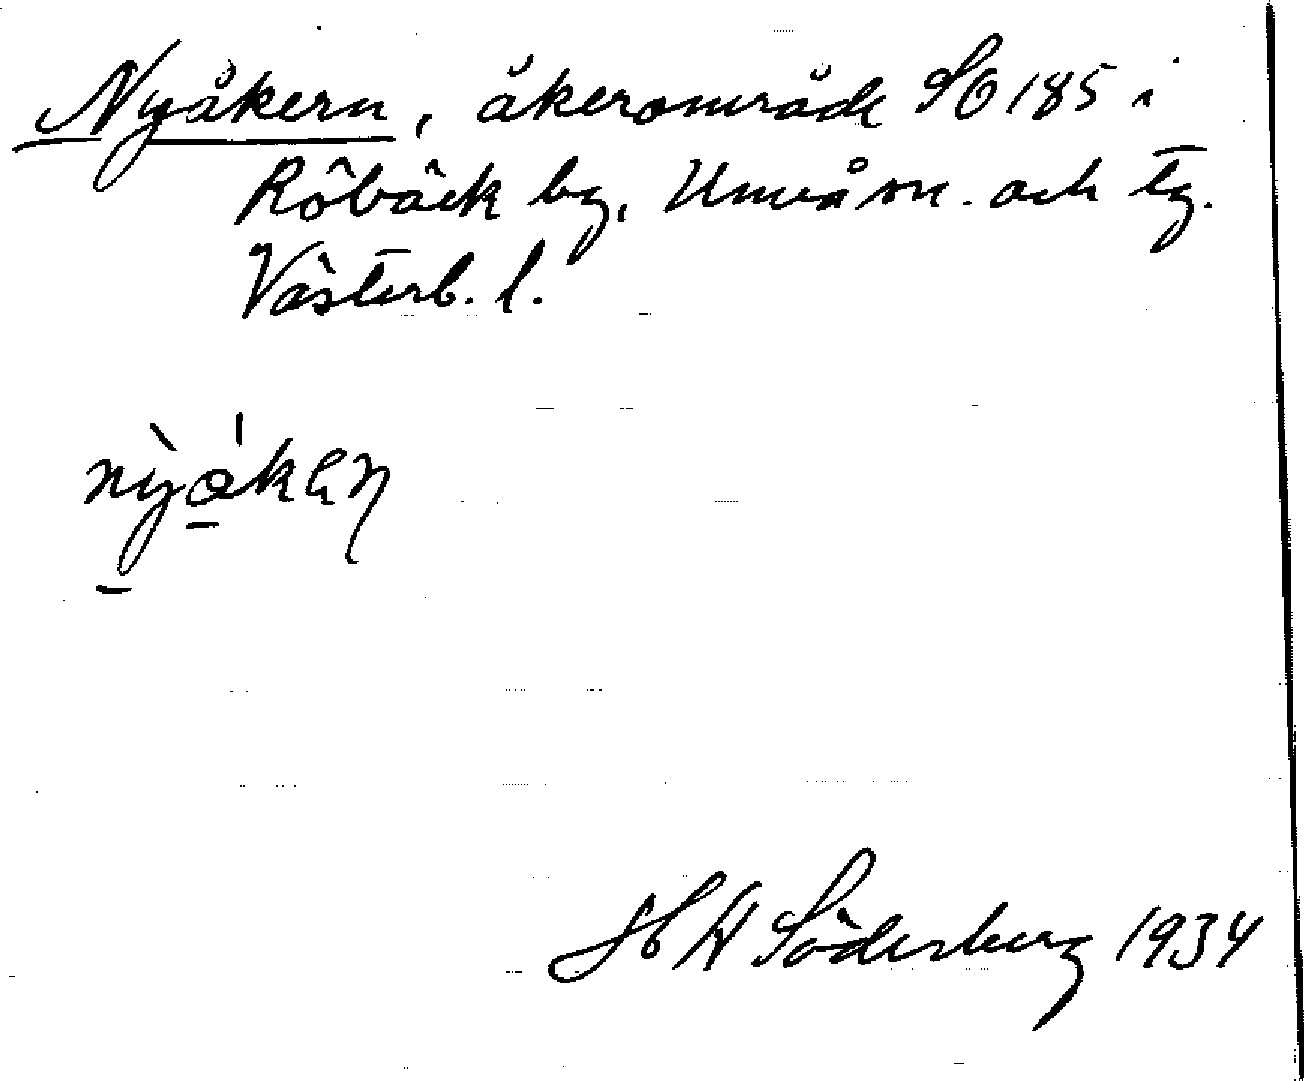 Nyåkern, åkerområde SO 185 i
Röbäck by, Umeå sn. och tg.
Västerb. l.
Söderberg 1934